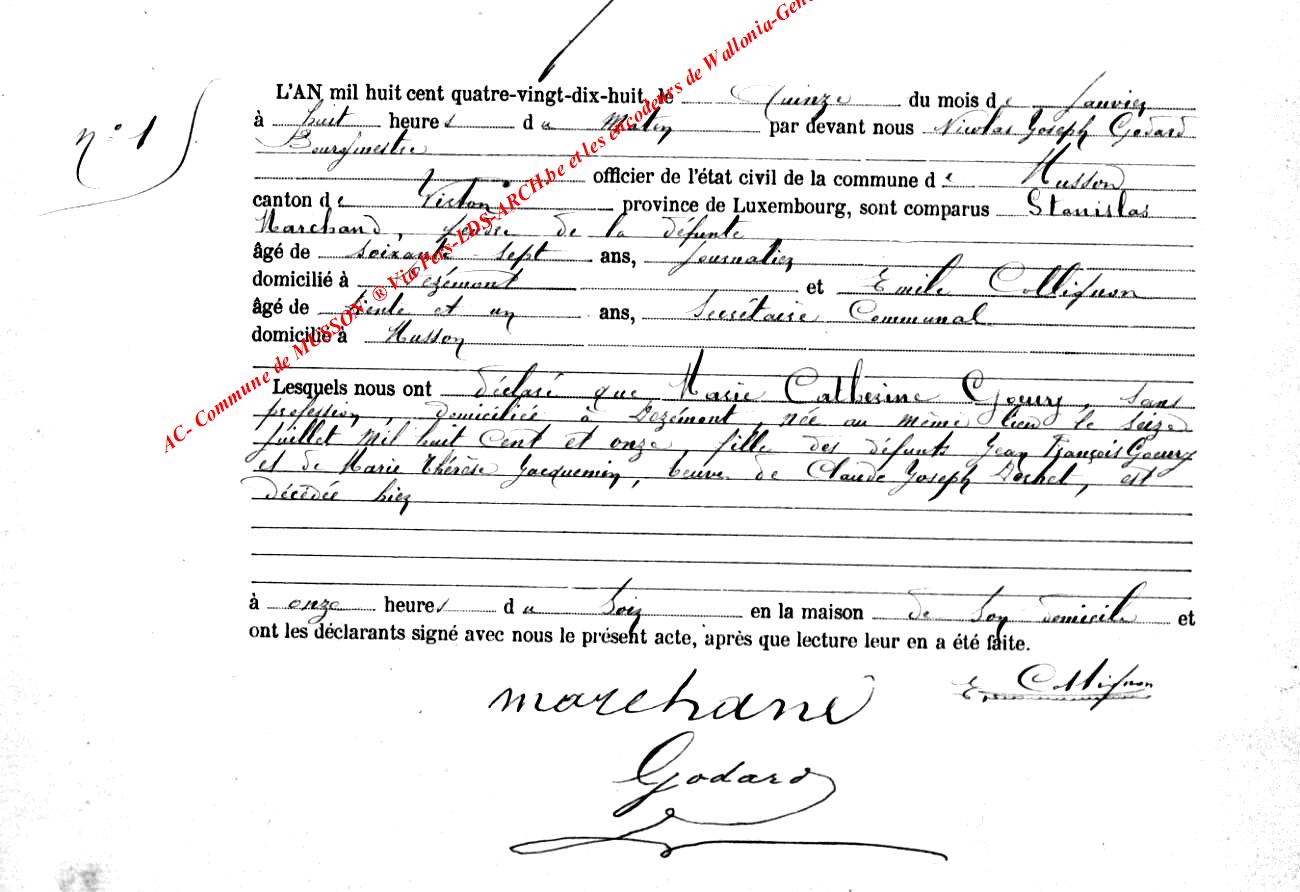 n° 1
L'AN mil huit cent quatre-vingt-dix-huit, le Quinze du mois de Janvier
à huit heures du Matin par devant nous Nicolas Joseph Godard
Bourgmestre
officier de l'état civil de la commune de Musson
canton de Virton province de Luxembourg, sont comparus Stanislas
Marchand, de la défunte
âgé de soixante sept ans, Journalier
domicilié à et Emile Collignon
âgé de trente et un ans, Secrétaire Communal
domicilié à Musson
Lesquels nous ont déclaré que Marie Catherine Goeury, sans
profession, domiciliée à , née au même lieu le seize
Juillet Mil huit Cent et onze, fille des défunts Jean François Goeury
et de Marie Thérèse Jacquemin, veuve de Claude Joseph , est
décédée hier
à onze heures du Soir en la maison de Son domicile et
ont les déclarants signé avec nous le présent acte, après que lecture leur en a été faite.
E. Collignon
Marchand
Godard
AC- Commune de MUSSON ® Via Pers-LDS-ARCH.be et les encodeurs de Wallonia-Gen